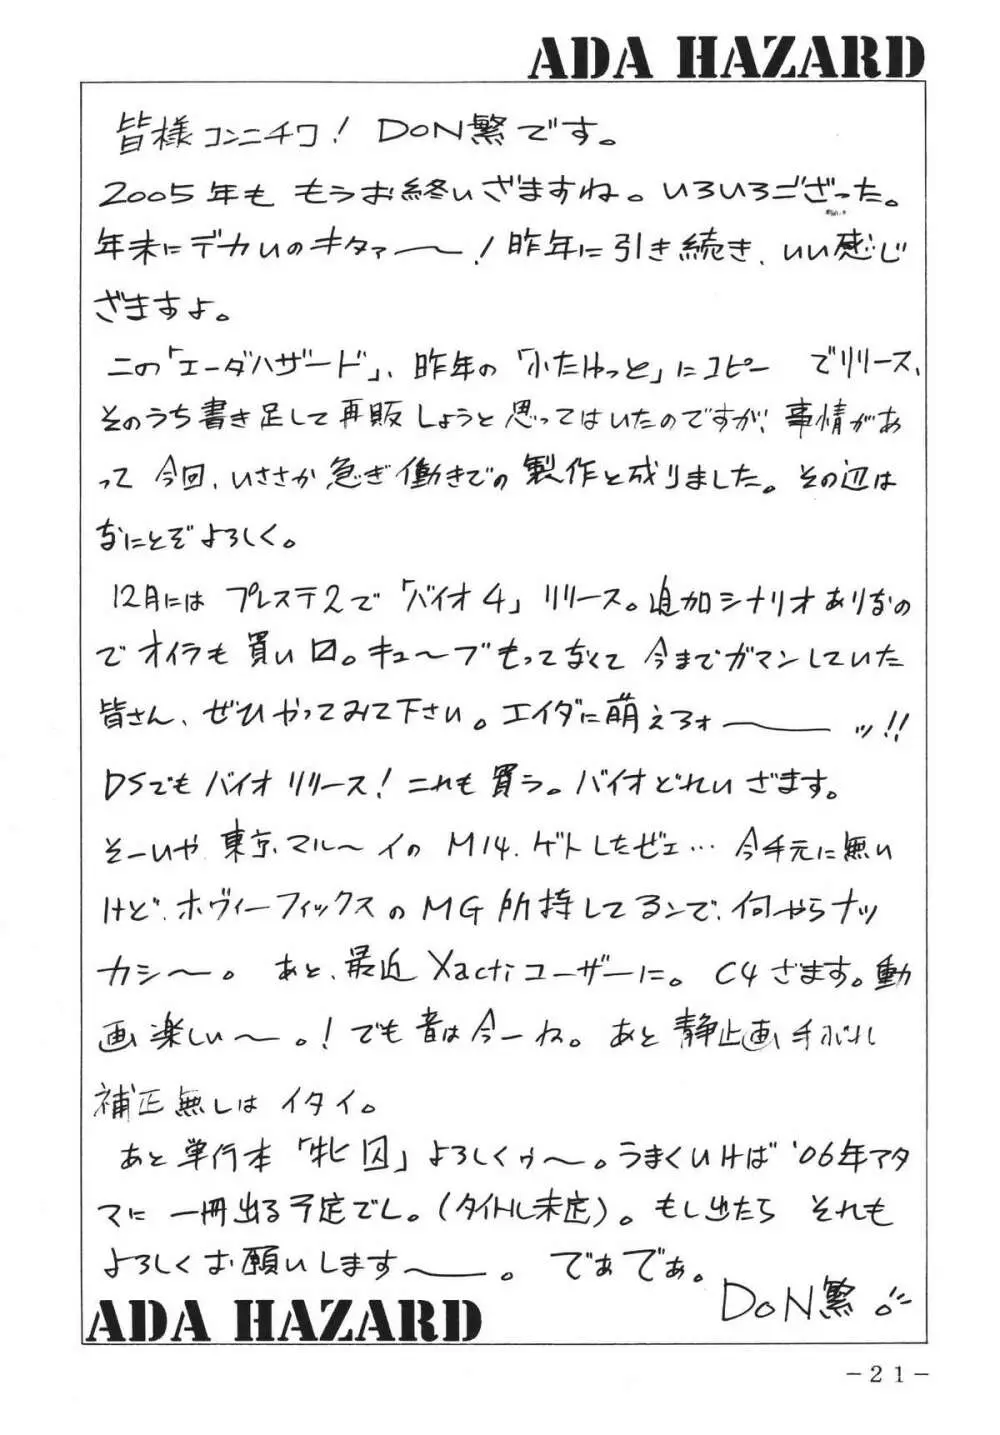 ADA HAZARD
皆様コンニチワ! DON繁です。
2005年も もうお終いざますね。いろいろござった。
年末にデカいのキタァ〜!昨年に引き続き、いい感じ
ざますよ。
この「エーダハザード」、昨年の「ふたけっと」にコピー でリリース、
そのうち書き足して再販しようと思ってはいたのですが、事情があ
って今回、いささか急ぎ働きでの製作と成りました。その辺は
なにとぞよろしく。
12月には プレステ2で「バイオ4」リリース。追加シナリオありなの
でオイラも買い口。キュ〜ブもってなくて今までガマンしていた
皆さん、ぜひやってみて下さい。エイダに萌えろォ――ッ!!
DSでもバイオリリース!これも買う。バイオどれいざます。
そーいや、東京マル〜イのM14、ゲトしたぜェ…今手元に無い
けど、ホヴィーフィックスのMG所持してるンで、何やらナッ
カシ〜。 あと、最近Xactiユーザーに。C4ざます。動
画楽しい〜。!でも音は今一ね。あと静止画手ぶれ
補正無しはイタイ。
あと単行本「牝囚」よろしくゥ〜。うまくいけば'06年アタ
マに一冊出る予定でし。(タイトル未定)。もし出たら それも
よろしくお願いします〜。 でぁでぁ。
DON繁
ADA HAZARD
-21-